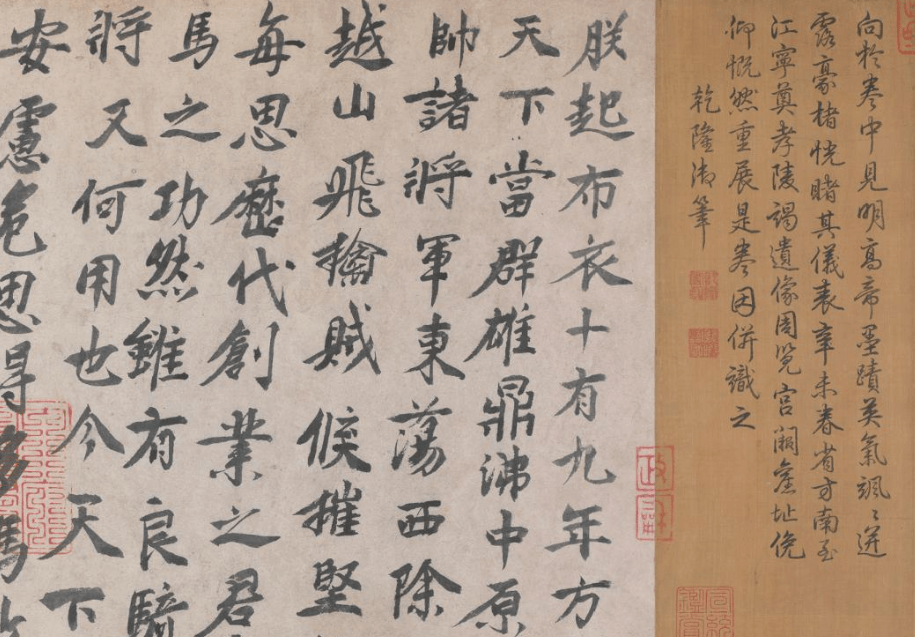 向於卷中見明高帝墨蹟英氣颯〻迸
露豪楮恍睹其儀表辛未春省方南至
江寧奠孝陵謁遺像周覽宮闕舊址俛
仰慨然重展是卷因併識之
乾隆御筆
朕起布衣十有九年方
天下當群雄鼎沸中原
帥諸將軍東蕩西除
越山飛擒賊候摧堅
每思歷代創業之君
馬之功然雖有良騎
將又何用也今天下
安慮危思得多馬